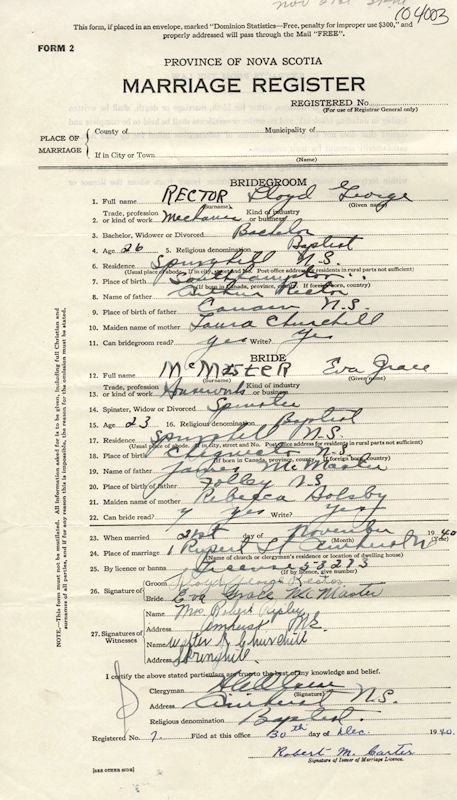 Nov 21st
104003
This form, if placed in an envelope, marked "Dominion Statistics—Free, penalty for improper use $300," and
properly addressed will pass through the Mail "FREE".
FORM 2
PROVINCE OF NOVA SCOTIA
MARRIAGE REGISTER
REGISTERED No.
(For use of Registrar General only)
PLACE OF MARRIAGE
County of Municipality of
If in City or Town
(Name)
BRIDEGROOM
1. Full name RECTOR Lloyd George
(Surname) (Given name)
2. Trade, profession or kind of work Mechanic Kind of industry or business
3. Bachelor, Widower or Divorced Bachelor
4. Age 26 5. Religious denomination Baptist
6. Residence Springhill N.S.
(Usual place of abode. If in city, street and No. Post office address for residents in rural parts not sufficient)
7. Place of birth Southampton
(If born in Canada, province, county. If foreign born, country)
8. Name of father Arthur Rector
9. Place of birth of father Canaan N.S.
10. Maiden name of mother Laura Churchill
11. Can bridegroom read? yes Write? Yes
BRIDE
12. Full name McMASTER Eva Grace
(Surname) (Given name)
13. Trade, profession or kind of work Housework Kind of industry or business
14. Spinster, Widow or Divorced Spinster
15. Age 23 16. Religious denomination Baptist
17. Residence Springhill N.S.
(Usual place of abode. If in city, street and No. Post office address for residents in rural parts not sufficient)
18. Place of birth Chignecto N.S.
(If born in Canada, province, county. If foreign born, country)
19. Name of father James McMaster
20. Place of birth of father Folley N.S.
21. Maiden name of mother Rebecca
22. Can bride read? yes Write? Yes
23. When married 21st day of November 1940
(Month) (Year)
24. Place of marriage 1 Rupert St Amherst N.S.
(Name of church or clergyman's residence or location of dwelling house)
25. By licence or banns License 53273
(If by licence, give number)
26. Signature of
Groom Lloyd George Rector
Bride Eva Grace McMaster
27. Signatures of Witnesses
Name Mrs. Robert Ripley
Address Amherst N.S.
Name Churchill
Address Springhill.
I certify the above stated particulars are true to the best of my knowledge and belief.
Clergyman
(Signature)
Address Amherst N.S.
Religious denomination Baptist.
Registered No. 7. Filed at this office 30th day of Dec. 1940.
Robert M. Carter
Signature of Issuer of Marriage Licence.
[SEE OTHER SIDE]
NOTE.—This form must not be mutilated. All information asked for is to be given, including full Christian and
surnames of all parties, and if for any reason this is impossible, the reason for the omission must be stated.